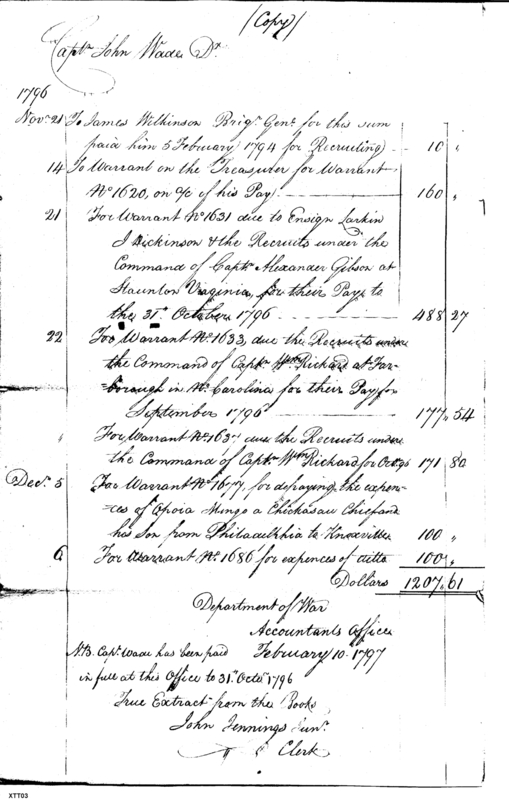 (Copy)
Capt. John Wade Dr.
1796
Novr. 21 To James Wilkinson Brigr. Genl. for this sum
paid him 5 February 1794 for Recruiting 10 "
14 To Warrant on the Treasurer for Warrant
No. 1620, on a/c of his Pay 160 "
21 For Warrant No. 1631 due to Ensign Larkin
J Dickinson & the Recruits under the
Command of Capt. Alexander Gibson at
Staunton Virginia, for their Pay to
the 31st. October 1796 488 27
22 For Warrant No. 1633, due the Recruits under
the Command of Capt. Wm. Richard at Tar-
borough in No. Carolina for their Pay for
September 1796 177 54
" For Warrant No. due the Recruits under
the Command of Capt. Wm. Richard for Oct. 96 171 80
Decr. 5 For Warrant No. 1677, for defraying the expen-
ces of Mingo a Chickasaw Chief and
his Son from Philadelphia to Knoxville 100 "
6 For Warrant No. 1686 for expences of ditto 100 "
Dollars 1207.61
Department of War
Accountants Office
N.B. Capt. Wade has been paid February 10. 1797
in full at this Office to 31st. Octor. 1796
True Extract from the Books
John Jennings Junr.
Clerk
XTT03